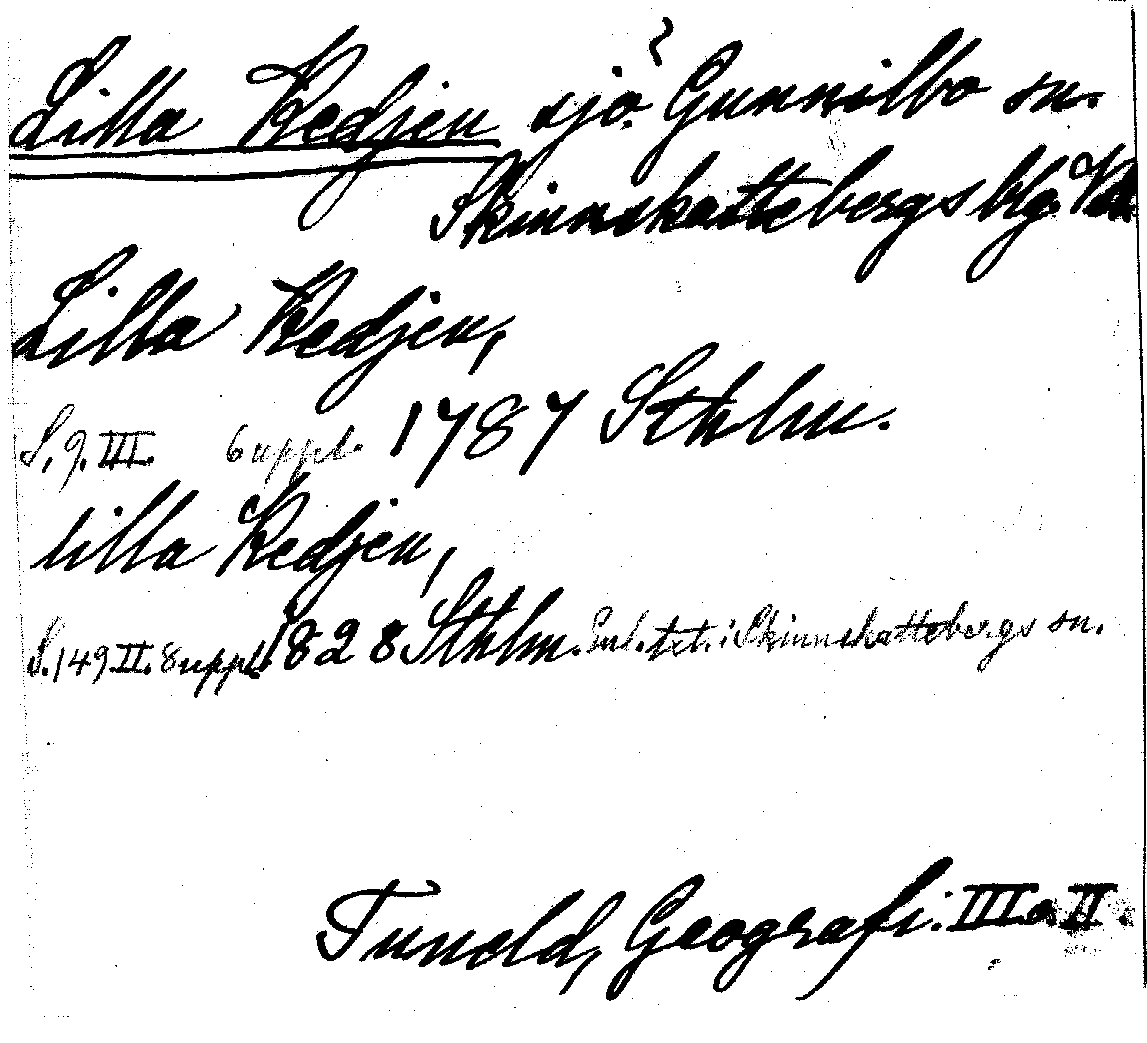 Lilla Kedjen sjö. Gunnilbo sn.
Skinnskattebergs blg. Vm
Lilla Kedjen,
S. 9. III. 6 uppl. 1787 Sthlm.
lilla Kedjen,
S. 149. II. 8 uppl. 1828 Sthlm. Enl. txt. i Skinnskattebergs sn.
Tuneld, Geografi. III o. II